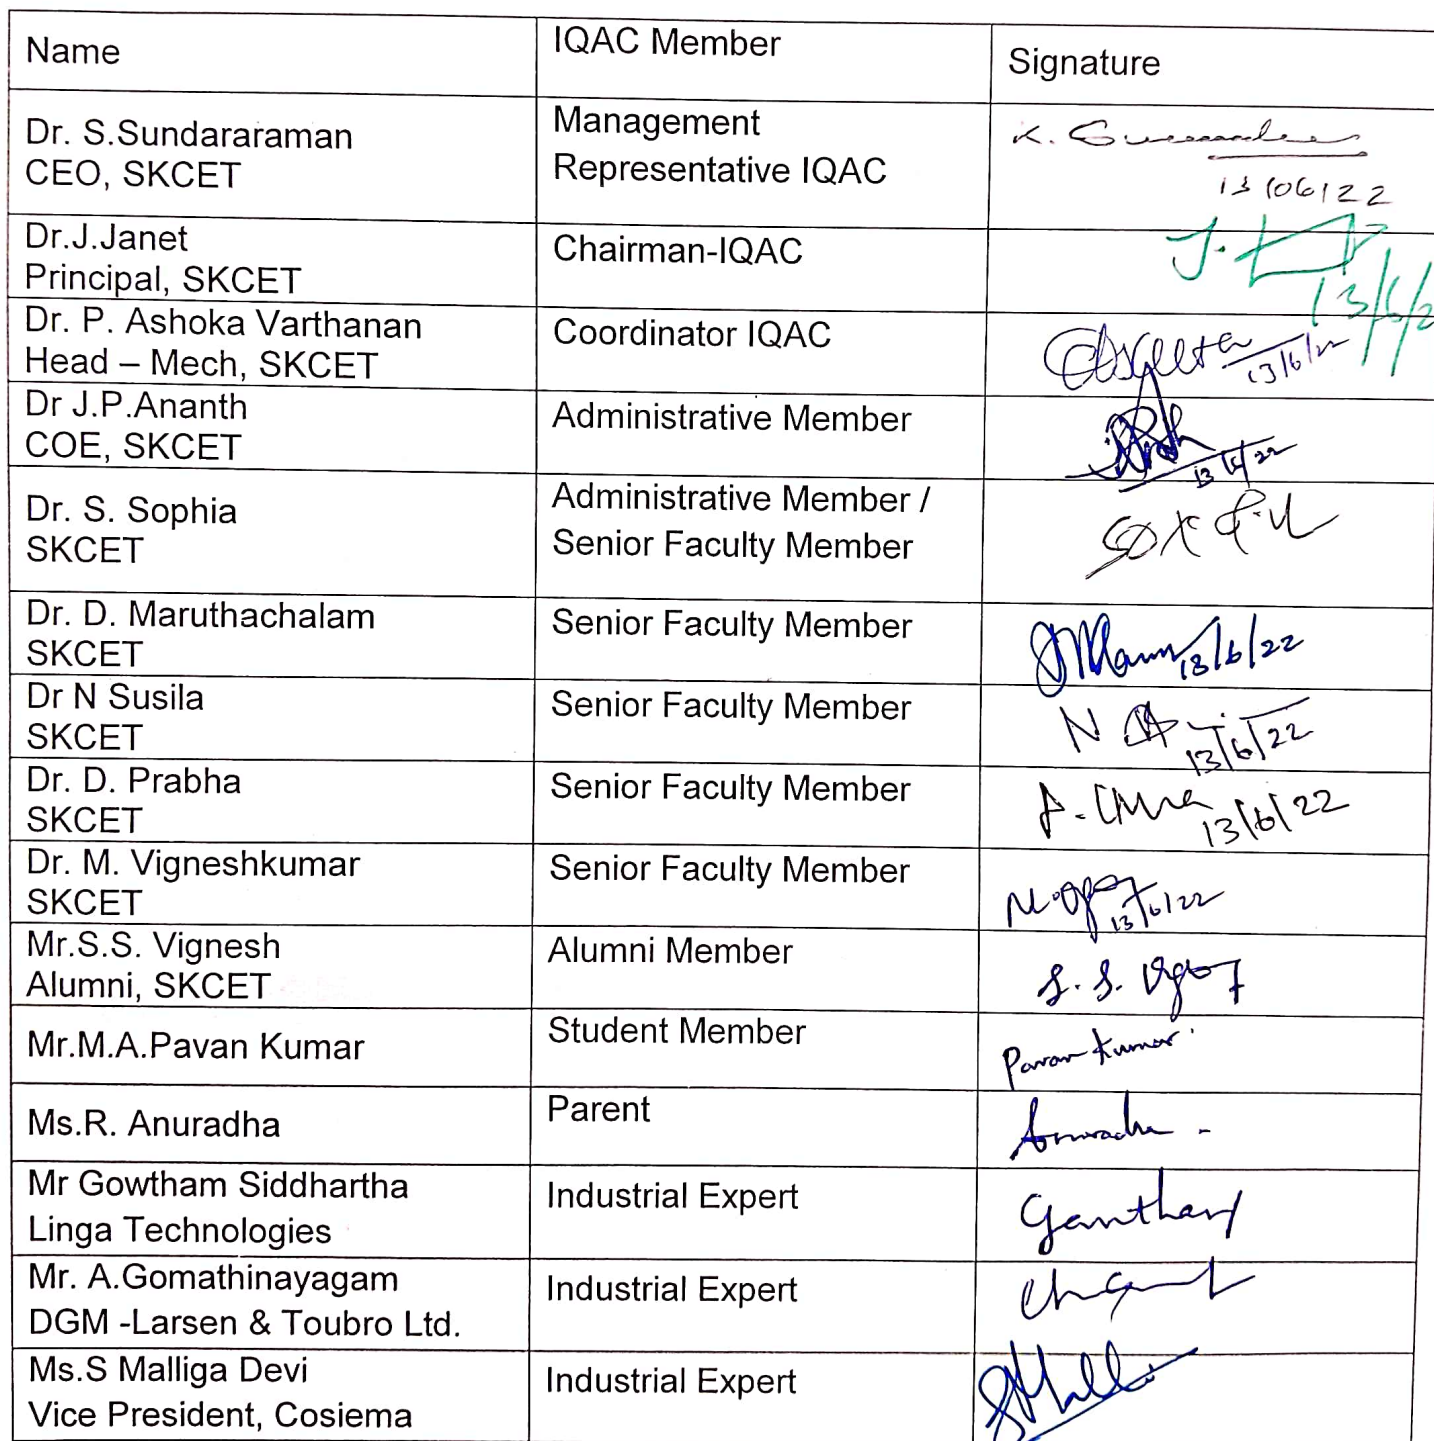 Name
IQAC Member
Signature
Dr. S.Sundararaman
CEO, SKCET
Management
Representative IQAC
13/06/22
Dr.J.Janet
Principal, SKCET
Chairman-IQAC
J.
13/6/2
Dr. P. Ashoka Varthanan
Head – Mech, SKCET
Coordinator IQAC
13/6/22
Dr J.P.Ananth
COE, SKCET
Administrative Member
13/6/22
Dr. S. Sophia
SKCET
Administrative Member /
Senior Faculty Member
Dr. D. Maruthachalam
SKCET
Senior Faculty Member
13/6/22
Dr N Susila
SKCET
Senior Faculty Member
N
13/6/22
Dr. D. Prabha
SKCET
Senior Faculty Member
13/6/22
Dr. M. Vigneshkumar
SKCET
Senior Faculty Member
13/6/22
Mr.S.S. Vignesh
Alumni, SKCET
Alumni Member
S. S.
Mr.M.A.Pavan Kumar
Student Member
Pavan Kumar
Ms.R. Anuradha
Parent
Anuradha
Mr Gowtham Siddhartha
Linga Technologies
Industrial Expert
Mr. A.Gomathinayagam
DGM -Larsen & Toubro Ltd.
Industrial Expert
Ms.S Malliga Devi
Vice President, Cosiema
Industrial Expert